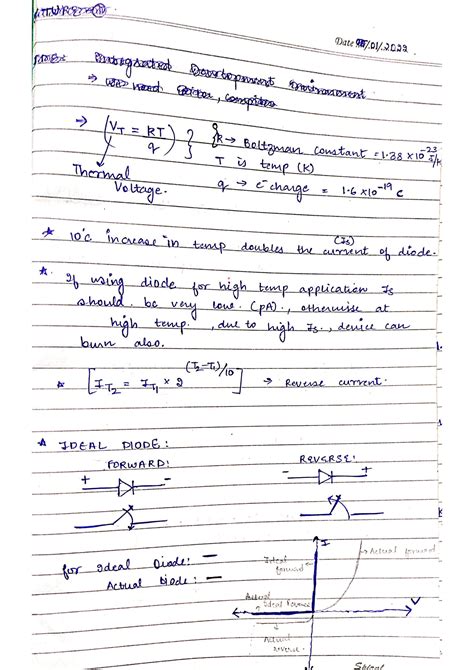 Date 05/01/2022
Integrated Development Environment
→ need Editor, compiler
→ (V_T = KT/q) } { K → Boltzman constant = 1.38 × 10^-23 J/K
T is temp (K)
q → e- charge = 1.6 × 10^-19 C
Thermal
Voltage.
* 10°C increase in temp doubles the current (Is) of diode.
* If using diode for high temp application Is
should be very low. (pA)., otherwise at
high temp., due to high Is., device can
burn also.
* [I_T2 = I_T1 × 2^(T2-T1)/10] → Reverse current.
* IDEAL DIODE:
FORWARD: REVERSE:
+ - - +
for Ideal Diode: —
Actual Diode: —
I
Ideal forward
→ Actual forward
Actual
Ideal Reverse
V
Actual
reverse